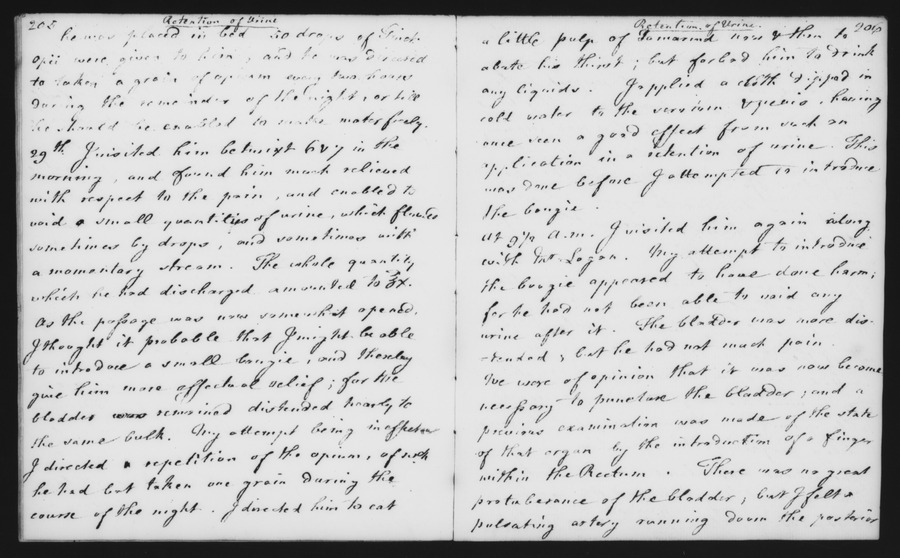 205 Retention of Urine
he was placed in bed 50 drops of Tinct.
opii were given to him, and he was directed
to take a grain of opium every two hours
during the remainder of the night, or till
he should be enabled to make water freely.
29th I visited him betwixt 6 & 7 in the
morning, and found him much relieved
with respect to the pain, and enabled to
void a small quantities of urine, which flowed
sometimes by drops, and sometimes with
a momentary stream. The whole quantity
which he had discharged amounted to ℥x.
As the passage was now somewhat opened,
I thought it probable that I might be able
to introduce a small bougie, and thereby
give him more effectual relief; for the
bladder remained distended nearly to
the same bulk. My attempt being ineffectual
I directed a repetition of the opium, of which
he had but taken one grain during the
course of the night. I directed him to eat
Retention of Urine. 206
a little pulp of Tamarind now & then to
abate his thirst; but forbad him to drink
any liquids. I applied a cloth dipped in
cold water to the & pubis, having
once seen a good effect from such an
application in a retention of urine. This
was done before I attempted to introduce
the bougie.
At 9½ A.m. I visited him again along
with Dr. Logan. My attempt to introduce
the bougie appeared to have done harm;
for he had not been able to void any
urine after it. The bladder was more dis-
-tended, but he had not much pain.
We were of opinion that it was now become
necessary to puncture the bladder; and a
previous examination was made of the state
of that organ by the introduction of a finger
within the Rectum. There was no great
protuberance of the bladder; but I felt a
pulsating artery running down the posterior